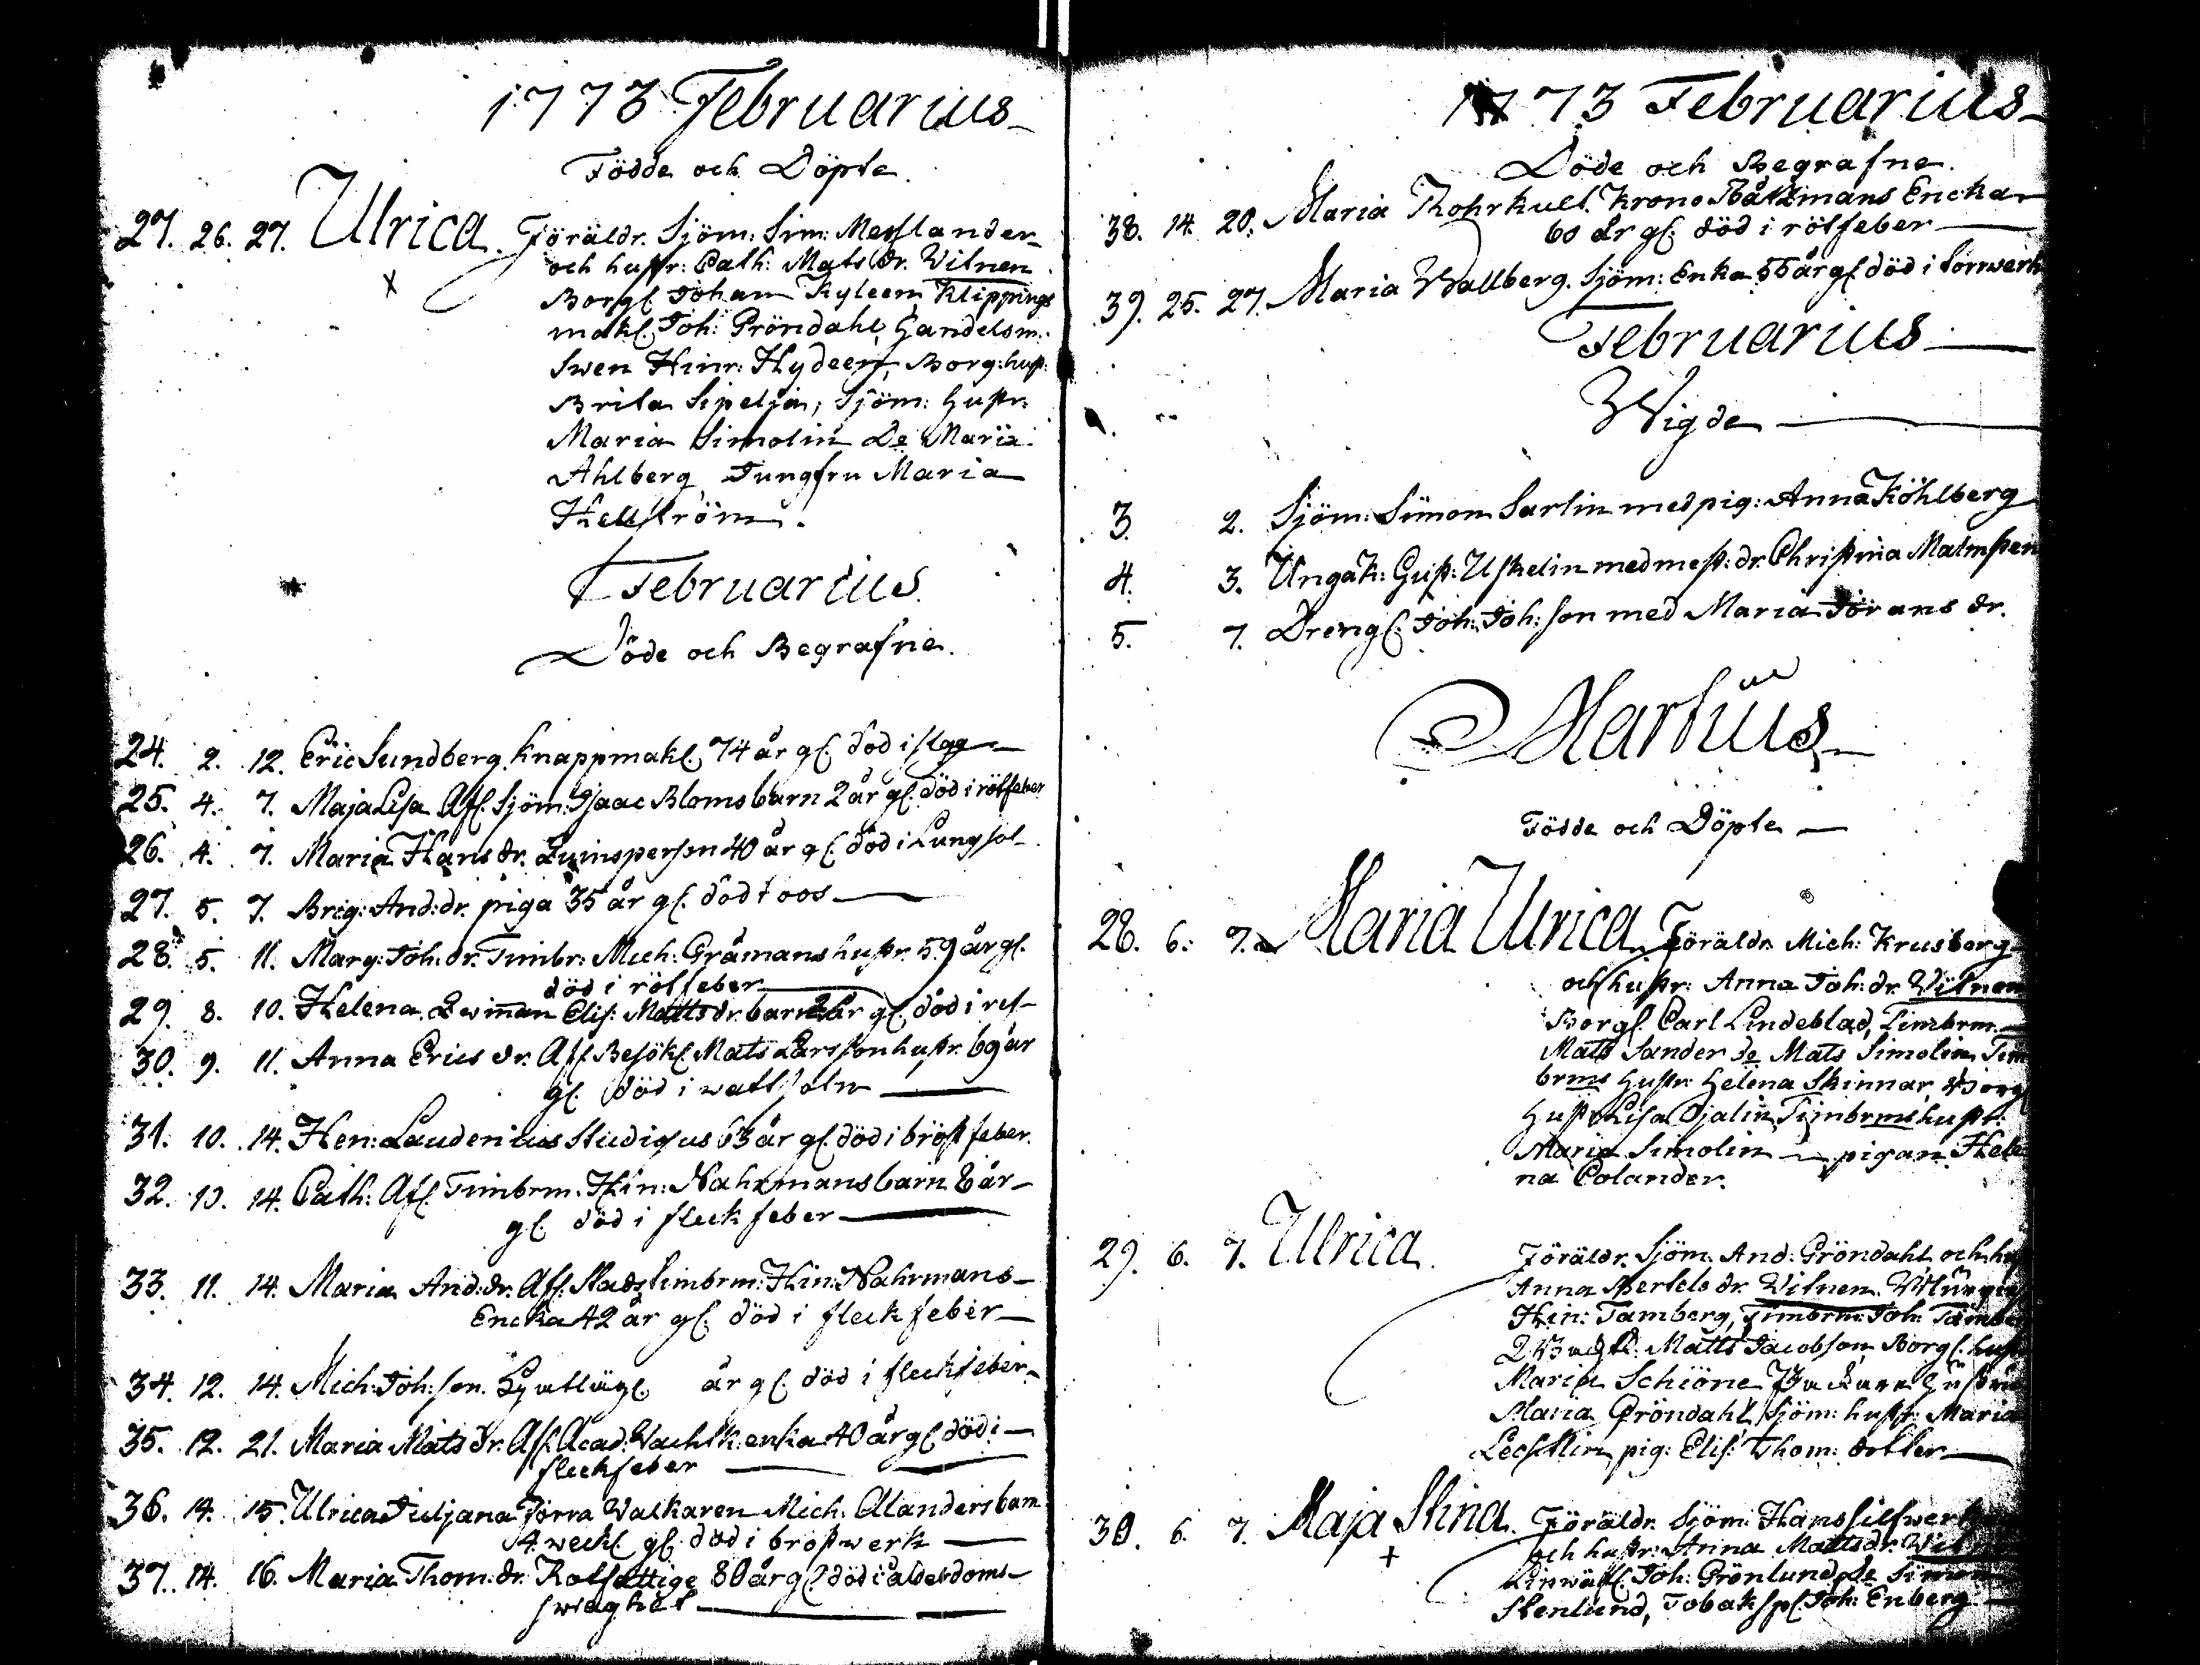 1773 Februarius
Födde och Döpte.
27. 26. 27. Ulrica. Föräldr. Sjöm: Sim: Messlander
och hustr: Cath: Mats dr. Witnen
Borgl. Johan Kyleen, Klippings
makl. Joh: Gröndahl, Handelsm:
Swen Hinr: Hydeen, Borg: hust:
Brita Sipelia, Sjöm: Hustr:
Maria Simolin De Maria
Ahlberg Jungfru Maria
Hellström.
Februarius.
Döde och Begrafne.
24. 2. 12. Eric Sundberg Knappmakl. 74 år gl. död i slag
25. 4. 7. Maja Lisa Afl. Sjöm: Isaac Bloms barn 2 år gl. död i rötfeber
26. 4. 7. Maria Hans dr. Inhinsperson 40 år gl. död i Lungsot
27. 5. 7. Brig: And: dr. piga 35 år gl. död
28. 5. 11. Marg: Joh: dr. Timbr: Mich: Gråmans hustr. 59 år gl.
död i rötfeber
29. 8. 10. Helena Elis: Matts dr. barn år gl. död i
30. 9. 11. Anna Erics dr. Afl. Besökl. Mats Larsson hustr. 69 år
gl. död i wattsotn
31. 10. 14. Hen: Laudenius Studiosus 63 år gl. död i bröstfeber.
32. 10. 14. Cath: Afl. Timbrm. Hin: Nahrmans barn 8 år
gl. död i fleckfeber
33. 11. 14. Maria And: dr. Afl. Stads timbrm: Hin: Nahrmans
Encka 42 år gl. död i fleckfeber
34. 12. 14. Mich: Joh: son. år gl. död i fleckfeber
35. 12. 21. Maria Mats dr. Afl. Acad: Wachtk: enka 40 år gl död i
fleckfeber
36. 14. 15. Ulrica Juljana Mich: Alanders barn
4 weckl gl. död i bröstwerk
37. 14. 16. Maria Thom: dr. Rotfattige 80 år gl död i ålderdoms
swaghet
1773 Februarius
Döde och Begrafne.
38. 14. 20. Maria Thohrkull. Krono Båtzmans Encka
60 år gl. död i rötfeber
39. 25. 27. Maria Wallberg. Sjöm: Enka 55 år gl död i torrwerk
Februarius
Wigde
3. 2. Sjöm: Simon Sarlin med pig: Anna Köhlberg
4. 3. Ungák: Gust: Uskelin med mest: dr. Christina Malmsten
5. 7. Drengl. Joh: Joh: son med Maria Jörans dr.
Martius
Födde och Döpte
28. 6. 7. Maria Ulrica. Föräldr. Mich: Krusberg
och hustr: Anna Joh: dr. Witnen
Borgl. Carl Lindeblad, Timbrm.
Mats Sander de Mats Simolin, Tim
brms Hustr: Helena Skinnar, Borg
Hustr Lisa Ojalin, Timbrms hustr.
Maria Simolin pigan Hele
na Colander.
29. 6. 7. Ulrica. Föräldr. Sjöm. And: Gröndahl och hu
Anna Bertels dr. Witnen.
Hin: Tamberg, Timbrm: Joh: Tamber
Matts Jacobson Borgl. hust
Maria Schiöne Hustru
Maria Gröndahl, Sjöm: hustr: Maria
Lechtlin pig: Elis: Thom: dotter
30. 6. 7. Maja Stina. Föräldr. Sjöm: Hans Silfwer
och hustr: Anna Matts dr. Wit
Linwäfl. Joh: Grönlund de Simon
Stenlund, Tobakspl Joh: Enberg